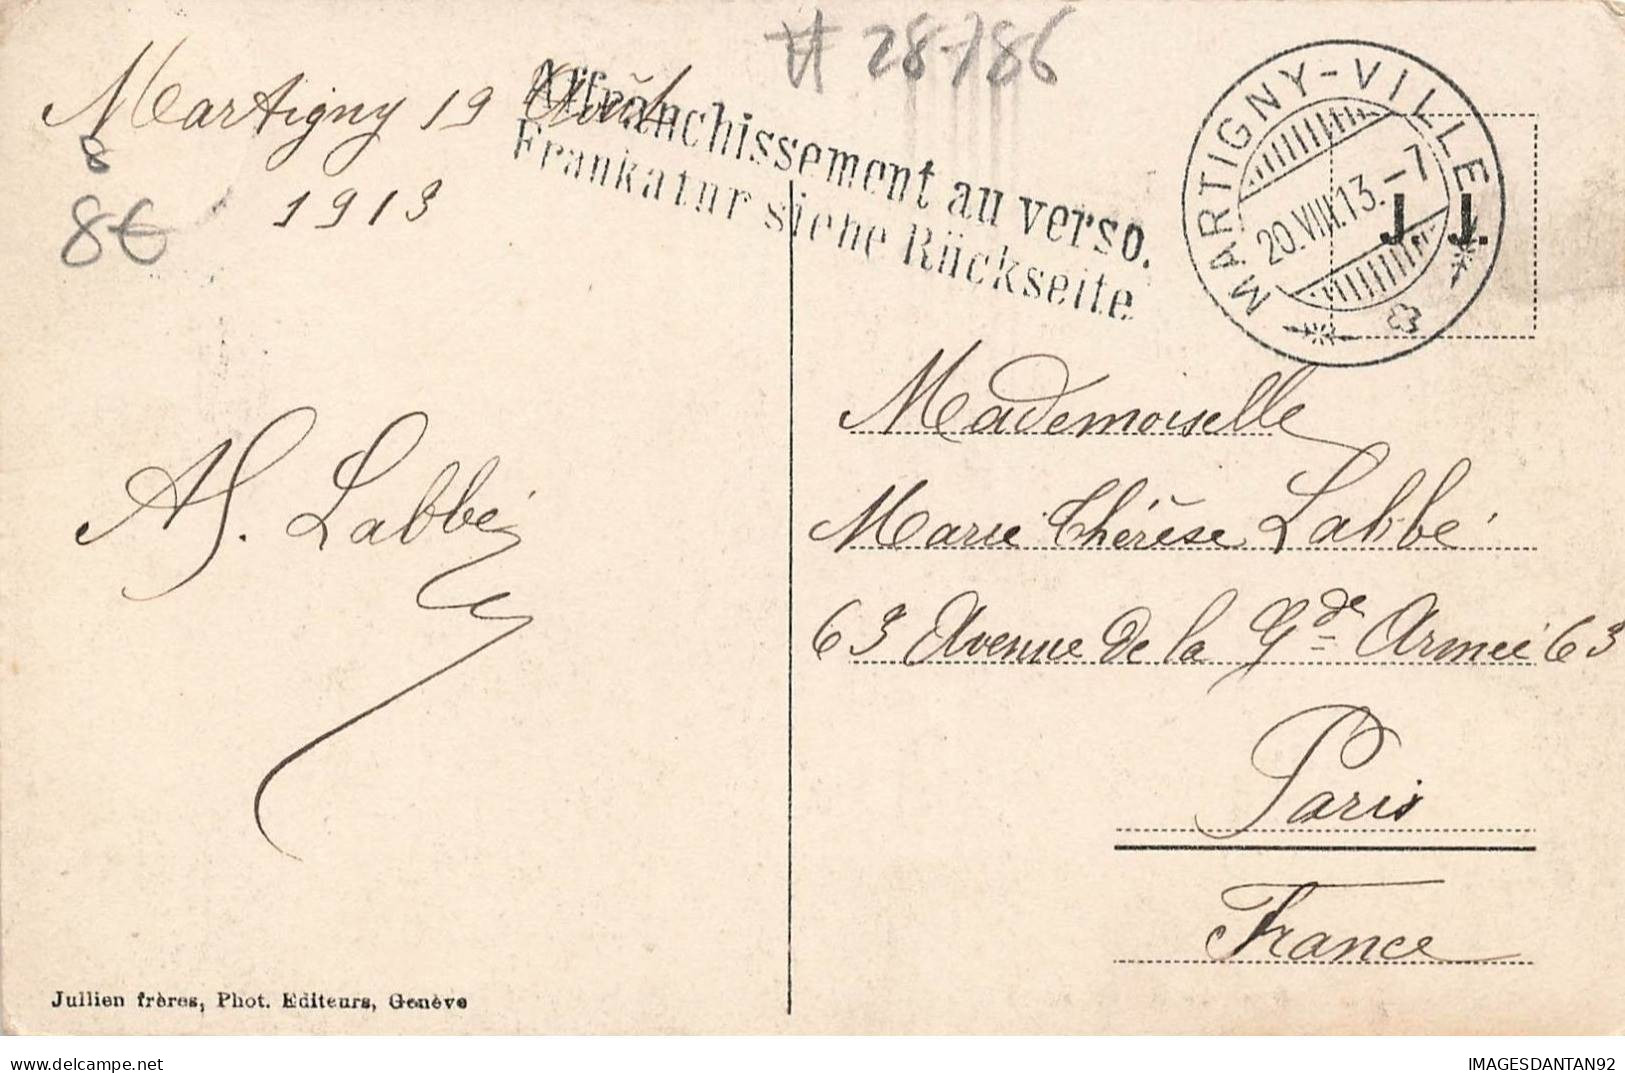 # 28786
Martigny 19 Août
1913
8
8€
Affranchissement au verso.
Frankatur siehe Rückseite
MARTIGNY-VILLE
20.VIII.13.-7
J. J.
A. Labbé
Mademoiselle
Marie Thérèse Labbé
63 Avenue de la Gde Armée 63
Paris
France
Jullien frères, Phot. Editeurs, Genève
delcampe.net
IMAGESDANTAN92